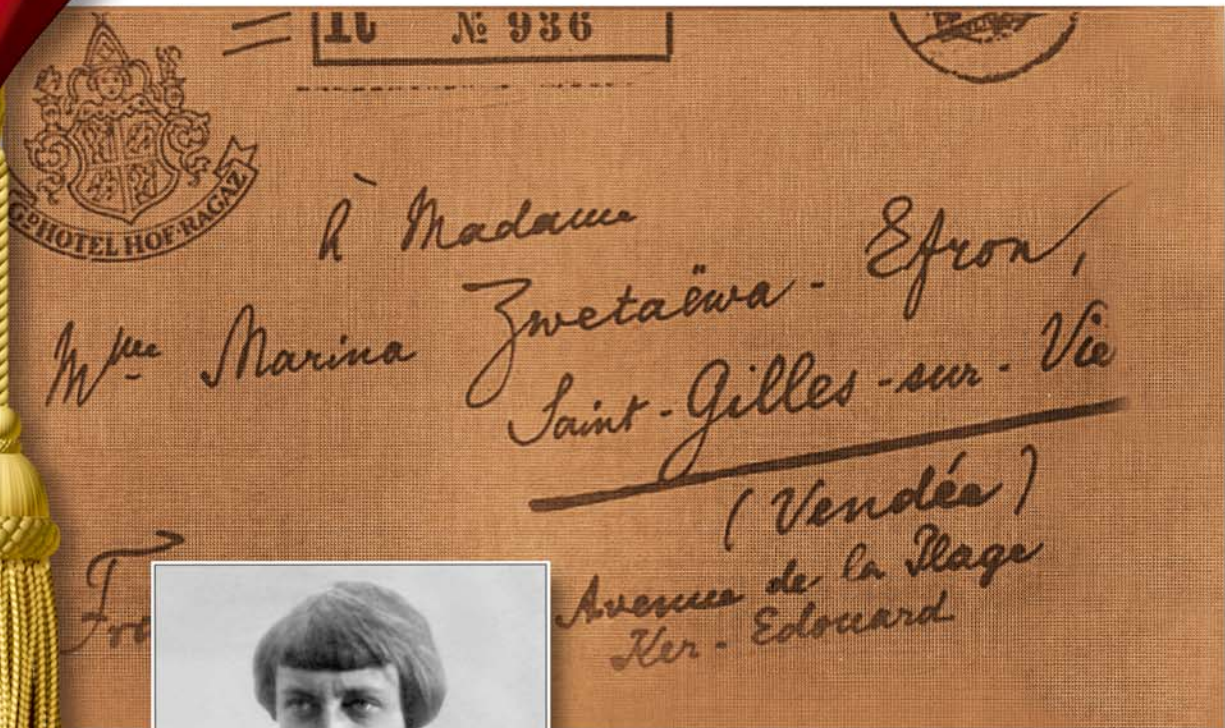 № 936
GD HOTEL HOF-RAGAZ
À Madame
Mme Marina Zwetaëwa - Efron,
Saint-Gilles-sur-Vie
(Vendée)
Avenue de la Plage
Ker-Edouard